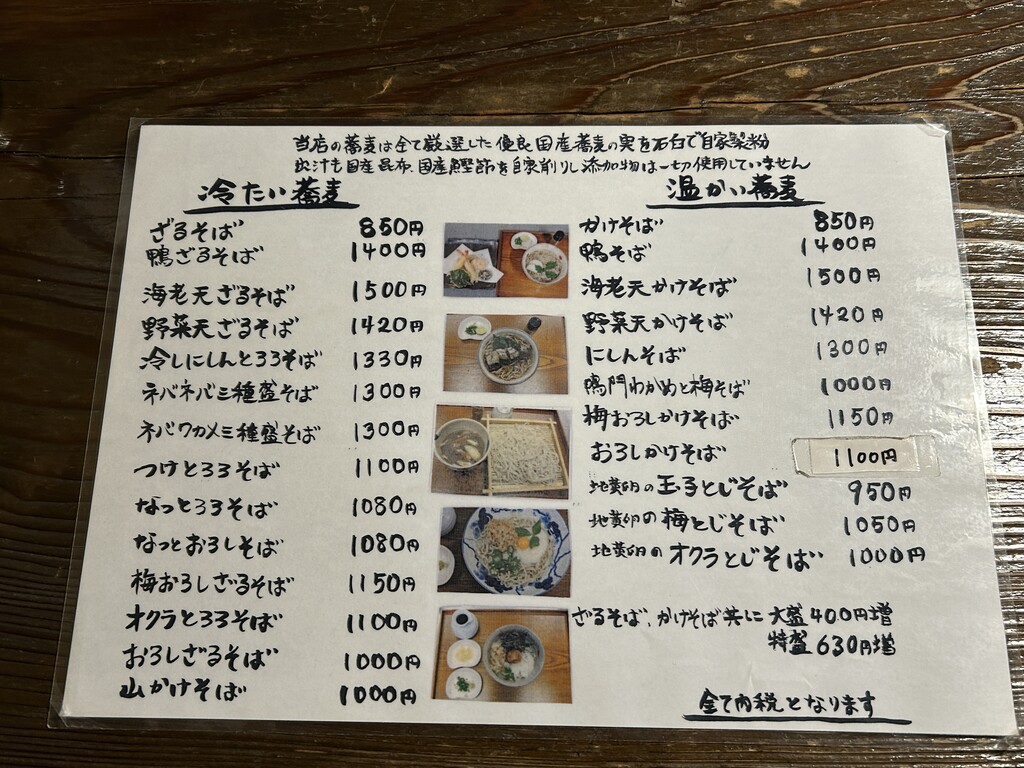 当店の蕎麦は全て厳選した優良国産蕎麦の実を石臼で自家製粉
出汁も国産昆布、国産鰹節を自家削りし添加物は一切使用していません
冷たい蕎麦
ざるそば 850円
鴨ざるそば 1400円
海老天ざるそば 1500円
野菜天ざるそば 1420円
冷しにしんとろろそば 1330円
ネバネバ三種盛そば 1300円
ネバワカメ三種盛そば 1300円
つけとろろそば 1100円
なっとろろそば 1080円
なっとおろしそば 1080円
梅おろしざるそば 1150円
オクラとろろそば 1100円
おろしざるそば 1000円
山かけそば 1000円
温かい蕎麦
かけそば 850円
鴨そば 1400円
海老天かけそば 1500円
野菜天かけそば 1420円
にしんそば 1300円
鳴門わかめと梅そば 1000円
梅おろしかけそば 1150円
おろしかけそば 1100円
地黄卵の玉子とじそば 950円
地黄卵の梅とじそば 1050円
地黄卵のオクラとじそば 1000円
ざるそば、かけそば共に大盛400円増
特盛630円増
全て内税となります